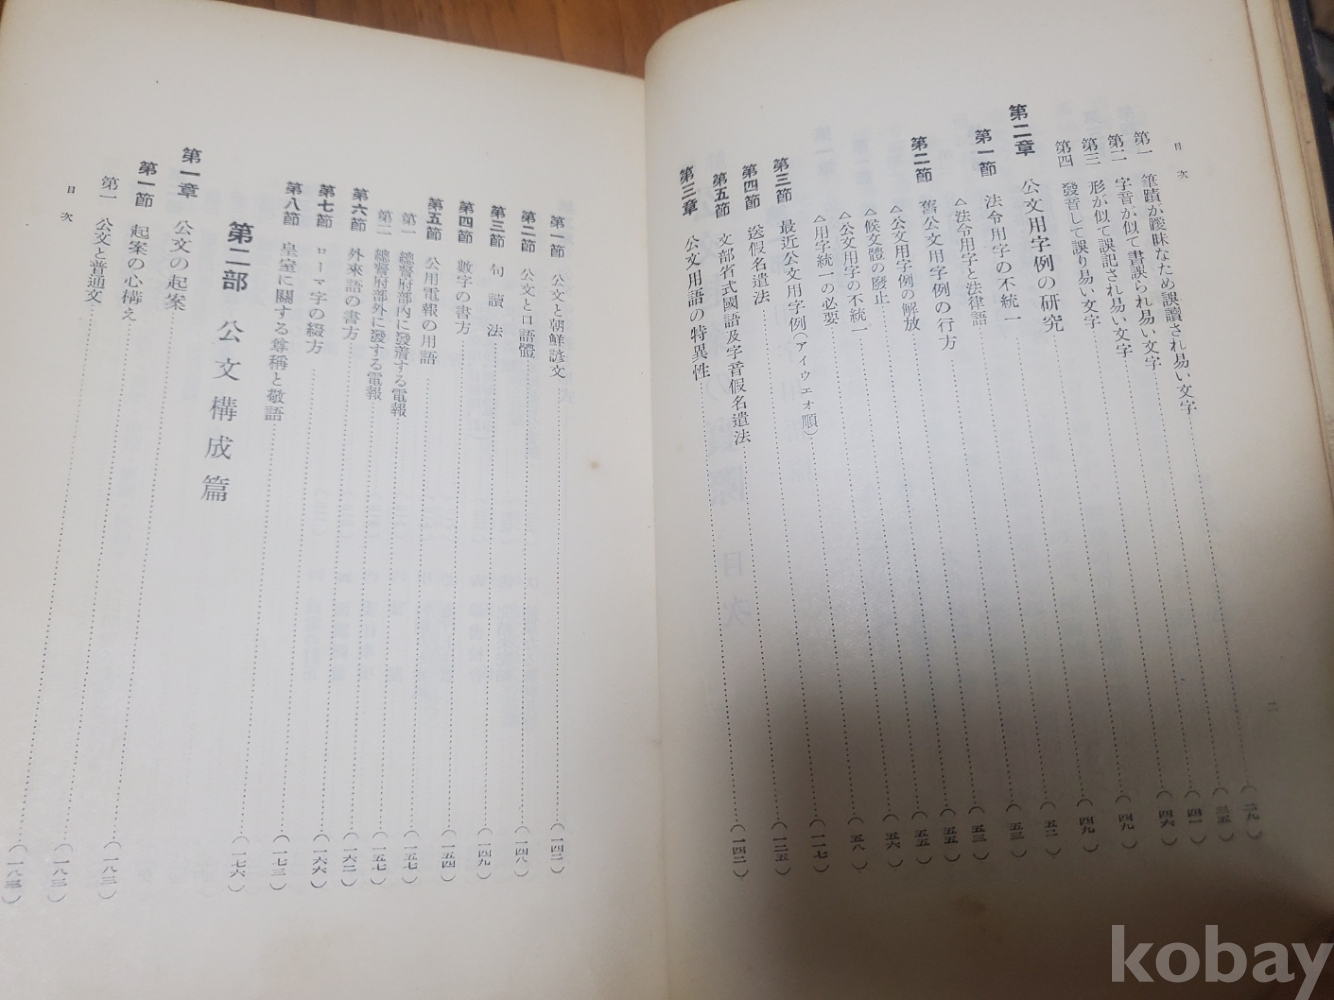 目次
第一 筆蹟が曖昧なため誤讀され易い文字 (二九)
第二 字音が似て書誤られ易い文字 (三五)
第三 形が似て誤記され易い文字 (四一)
第四 發音して誤り易い文字 (四六)
第二章 公文用字例の研究 (四九)
第一節 法令用字の不統一 (四九)
△法令用字と法律語 (五二)
第二節 舊公文用字例の行方 (五三)
△公文用字例の解放 (五三)
△候文體の廢止 (五五)
△公文用字の不統一 (五五)
△用字統一の必要 (五六)
第三節 最近公文用字例(アイウエオ順) (五八)
第四節 送假名遣法 (一一七)
第五節 文部省式國語及字音假名遣法 (一二五)
第三章 公文用語の特異性 (一四二)
二
第一節 公文と朝鮮諺文 (一四二)
第二節 公文と口語體 (一四八)
第三節 句讀法 (一四九)
第四節 數字の書方 (一五四)
第五節 公用電報の用語 (一五七)
第一 總督府部內に發着する電報 (一五七)
第二 總督府部外に發する電報 (一六二)
第六節 外來語の書方 (一六六)
第七節 ローマ字の綴方 (一七三)
第八節 皇室に關する尊稱と敬語 (一七六)
第二部 公文構成篇
第一章 公文の起案 (一八三)
第一節 起案の心構え (一八三)
第一 公文と普通文 (一八三)
目次
kobay